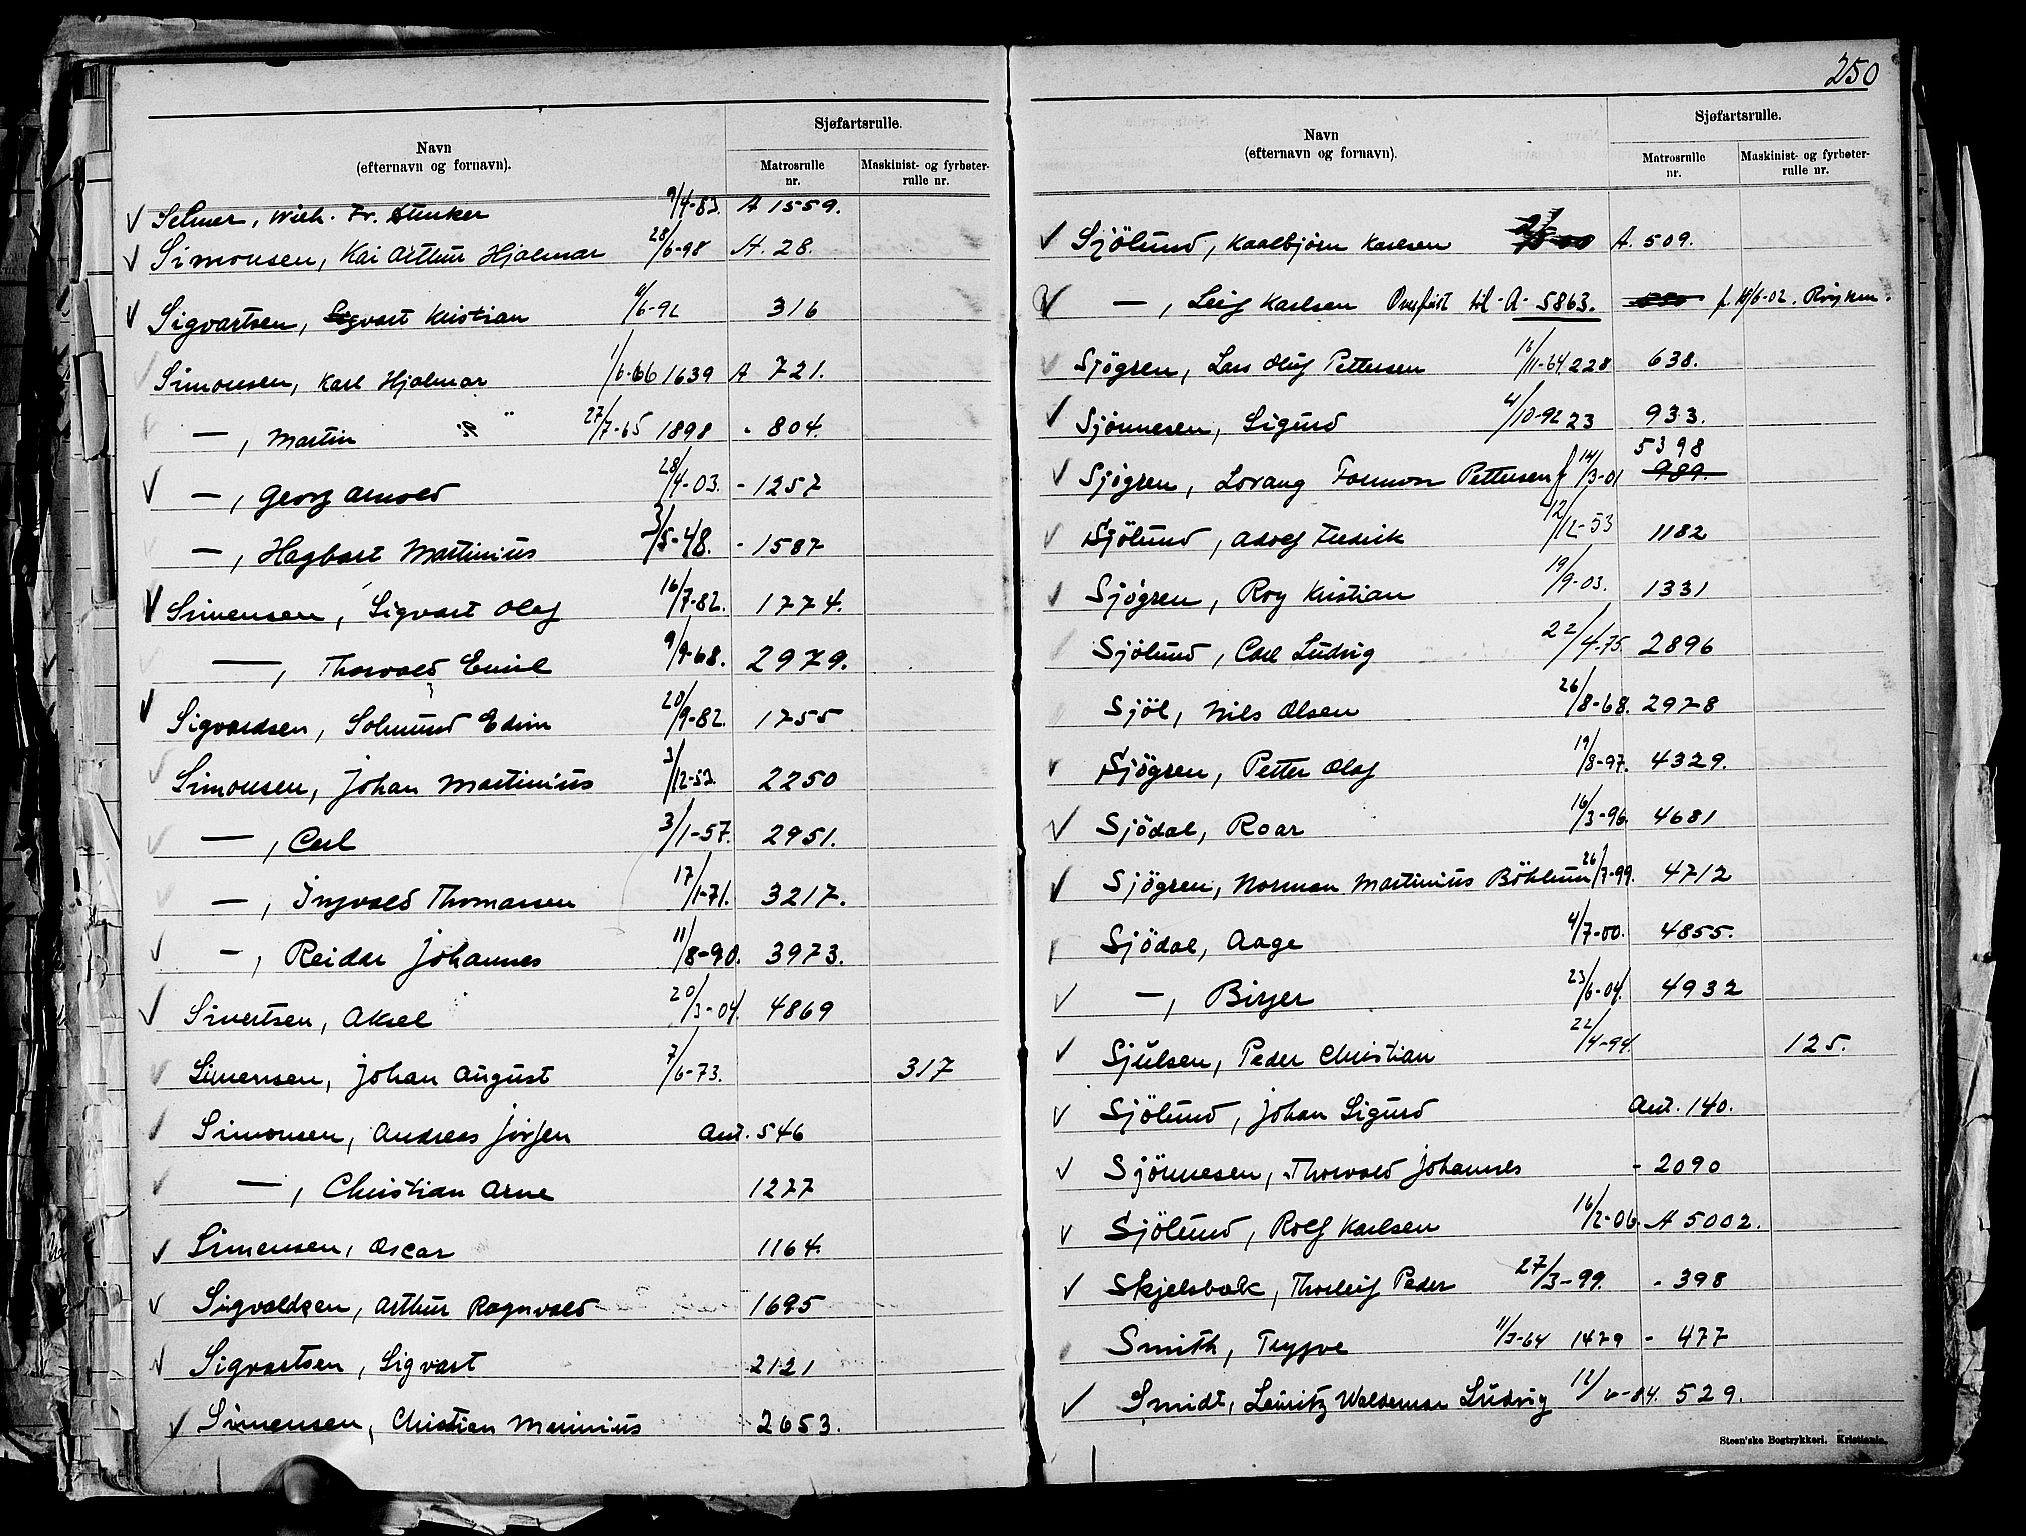 Navn
(efternavn og fornavn).
Sjøfartsrulle.
Matrosrulle nr.
Maskinist- og fyrbøter-rulle nr.
Selmer, Wilh. Fr. 9/4-83. A 1559.
Simonsen, Kai Arthur Hjalmar 28/6-98 A. 28.
Sigvartsen, Sigvart Kristian 11/6-92 316
Simonsen, Karl Hjalmar 1/6-66 1639 A 721.
—, Martin 27/7-65 1898 - 804.
—, Georg Arnold 28/4-03. - 1257
—, Hagbart Martinius 3/5-48. - 1587
Simensen, Sigvart Olaf 16/7-82. 1774.
—, Thorvald Emil 9/9-68. 2979.
Sigvardsen, Solmund Edvin 20/9-82. 1755
Simonsen, Johan Martinius 3/12-53. 2250
—, Carl 3/1-57. 2951.
—, Ingvald Thomassen 17/1-71. 3217.
—, Reidar Johannes 11/8-90. 3973.
Sivertsen, Aksel 20/3-04. 4869
Simensen, Johan August 7/6-73. 317
Simonsen, Andreas Jørgen Ant. 546
—, Christian Arne 1277
Simensen, Oscar 1164.
Sigvaldsen, Arthur Ragnvald 1695
Sigvartsen, Sigvart 2121
Simensen, Christian Marinius 2653.
250
Navn
(efternavn og fornavn).
Sjøfartsrulle.
Matrosrulle nr.
Maskinist- og fyrbøter-rulle nr.
Sjölund, Kaalbjørn Karlsen A. 509.
—, Leif Karlsen Overført til A- 5863. 550 f. 10/6-02. Røyken.
Sjøgren, Lars Oluf Pettersen 16/11-64 228 638.
Sjønnesen, Sigurd 4/10-92 23 933.
5398
Sjøgren, Lorang Formon Pettersen f 14/3-01 989.
Sjölund, Adolf Fredrik 12/12-53 1182
Sjøgren, Roy Kristian 19/9-03. 1331
Sjölund, Carl Ludvig 22/4-75. 2896
Sjöl, Nils Olsen 26/8-68. 2978
Sjögren, Petter Olaf 19/8-97. 4329.
Sjödal, Roar 16/3-96. 4681
Sjögren, Norman Martinius Böhlun 26/7-99. 4712
Sjödal, Aage 4/7-00. 4855.
—, Birger 23/6-04. 4932
Sjulsen, Peder Christian 22/4-94. 125.
Sjölund, Johan Sigurd Ant. 140.
Sjönnesen, Thorvald Johannes - 2090
Sjölund, Rolf Karlsen 16/2-06. A 5002.
Skjelsbæk, Thorleif Peder 27/3-99. - 398
Smith, Trygve 11/3-64 1479 - 477
Smidt, Leinitz Waldemar Ludvig 12/6-84. 529.
Steen'ske Bogtrykkeri. Kristiania.